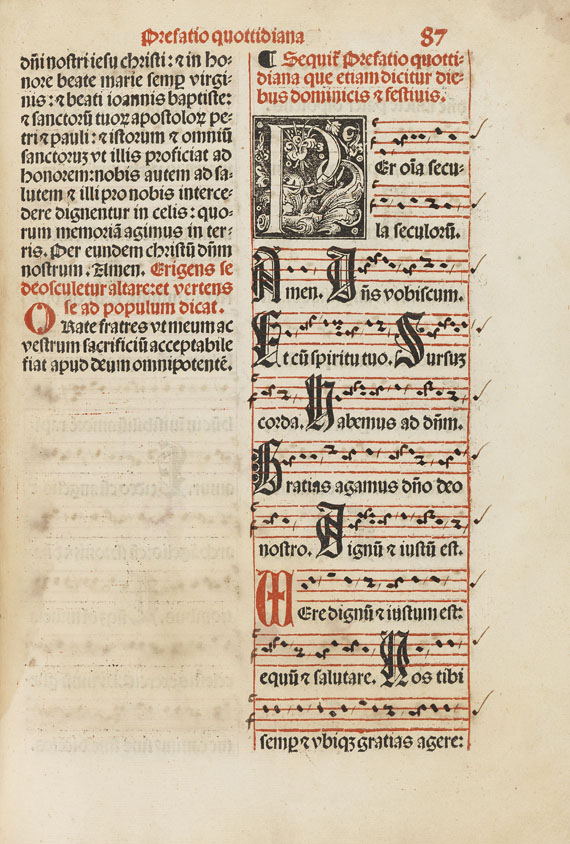 Prefatio quottidiana 87
dñi nostri iesu christi: ⁊ in ho-
nore beate marie semp virgi-
nis: ⁊ beati ioannis baptiste:
⁊ sanctorū tuoꝝ apostoloꝝ pe-
tri ⁊ pauli: ⁊ istorum ⁊ omniū
sanctoruꝫ vt illis proficiat ad
honorem: nobis autem ad sa-
lutem ⁊ illi pro nobis interce-
dere dignentur in celis: quo-
rum memoriā agimus in ter-
ris. Per eundem christū dn̄m
nostrum. Amen. Erigens se
deosculetur altare: et vertens
se ad populum dicat.
ORate fratres vt meum ac
vestrum sacrificiū acceptabile
fiat apud deum omnipotentē.
¶ Sequit̄ Prefatio quotti-
diana que etiam dicitur die-
bus dominicis ⁊ festiuis.
PEr oīa secu-
la seculorū.
Amen. Dñs vobiscum.
Et cū spiritu tuo. Sursuꝫ
corda. Habemus ad dn̄m.
Gratias agamus dño deo
nostro. Dignū ⁊ iustū est.
VEre dignū ⁊ iustum est:
equū ⁊ salutare. Nos tibi
semꝑ ⁊ vbiqꝫ gratias agere: